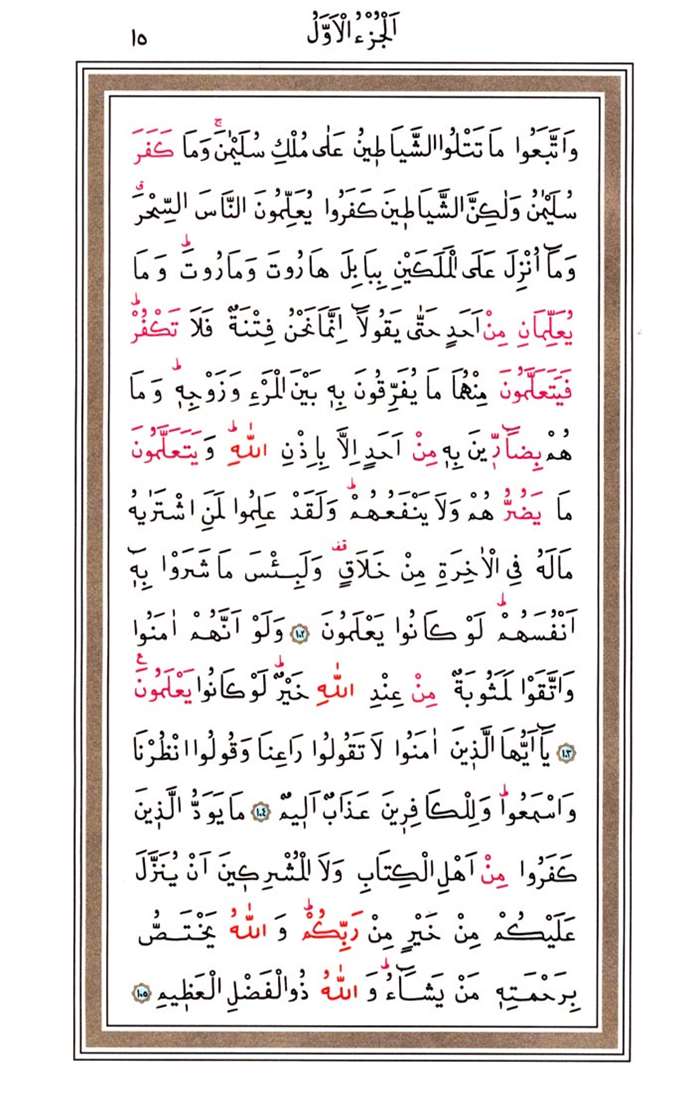 اَلْجُزْءُ الْاَوَّلُ ١٥
وَاتَّبَعُوا مَا تَتْلُوا الشَّيَاطٖينُ عَلٰى مُلْكِ سُلَيْمٰنَۚ وَمَا كَفَرَ
سُلَيْمٰنُ وَلٰكِنَّ الشَّيَاطٖينَ كَفَرُوا يُعَلِّمُونَ النَّاسَ السِّحْرَۗ
وَمَٓا اُنْزِلَ عَلَى الْمَلَكَيْنِ بِبَابِلَ هَارُوتَ وَمَارُوتَۜ وَمَا
يُعَلِّمَانِ مِنْ اَحَدٍ حَتّٰى يَقُولَٓا اِنَّمَا نَحْنُ فِتْنَةٌ فَلَا تَكْفُرْۜ
فَيَتَعَلَّمُونَ مِنْهُمَا مَا يُفَرِّقُونَ بِهٖ بَيْنَ الْمَرْءِ وَزَوْجِهٖۜ وَمَا
هُمْ بِضَٓارّٖينَ بِهٖ مِنْ اَحَدٍ اِلَّا بِاِذْنِ اللّٰهِۜ وَيَتَعَلَّمُونَ
مَا يَضُرُّهُمْ وَلَا يَنْفَعُهُمْۜ وَلَقَدْ عَلِمُوا لَمَنِ اشْتَرٰيهُ
مَا لَهُ فِي الْاٰخِرَةِ مِنْ خَلَاقٍ قف وَلَبِئْسَ مَا شَرَوْا بِهٖٓ
اَنْفُسَهُمْۜ لَوْ كَانُوا يَعْلَمُونَ ﴿١٠٢﴾ وَلَوْ اَنَّهُمْ اٰمَنُوا
وَاتَّقَوْا لَمَثُوبَةٌ مِنْ عِنْدِ اللّٰهِ خَيْرٌۜ لَوْ كَانُوا يَعْلَمُونَ ع
﴿١٠٣﴾ يَٓا اَيُّهَا الَّذٖينَ اٰمَنُوا لَا تَقُولُوا رَاعِنَا وَقُولُوا انْظُرْنَا
وَاسْمَعُواۜ وَلِلْكَافِرٖينَ عَذَابٌ اَلٖيمٌ ﴿١٠٤﴾ مَا يَوَدُّ الَّذٖينَ
كَفَرُوا مِنْ اَهْلِ الْكِتَابِ وَلَا الْمُشْرِكٖينَ اَنْ يُنَزَّلَ
عَلَيْكُمْ مِنْ خَيْرٍ مِنْ رَبِّكُمْۜ وَاللّٰهُ يَخْتَصُّ
بِرَحْمَتِهٖ مَنْ يَشَٓاءُۜ وَاللّٰهُ ذُو الْفَضْلِ الْعَظٖيمِ ﴿١٠٥﴾